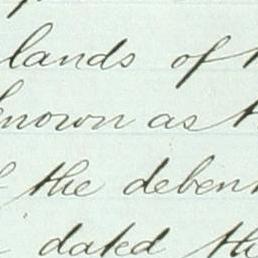 lands of
known as
the deben
dated the